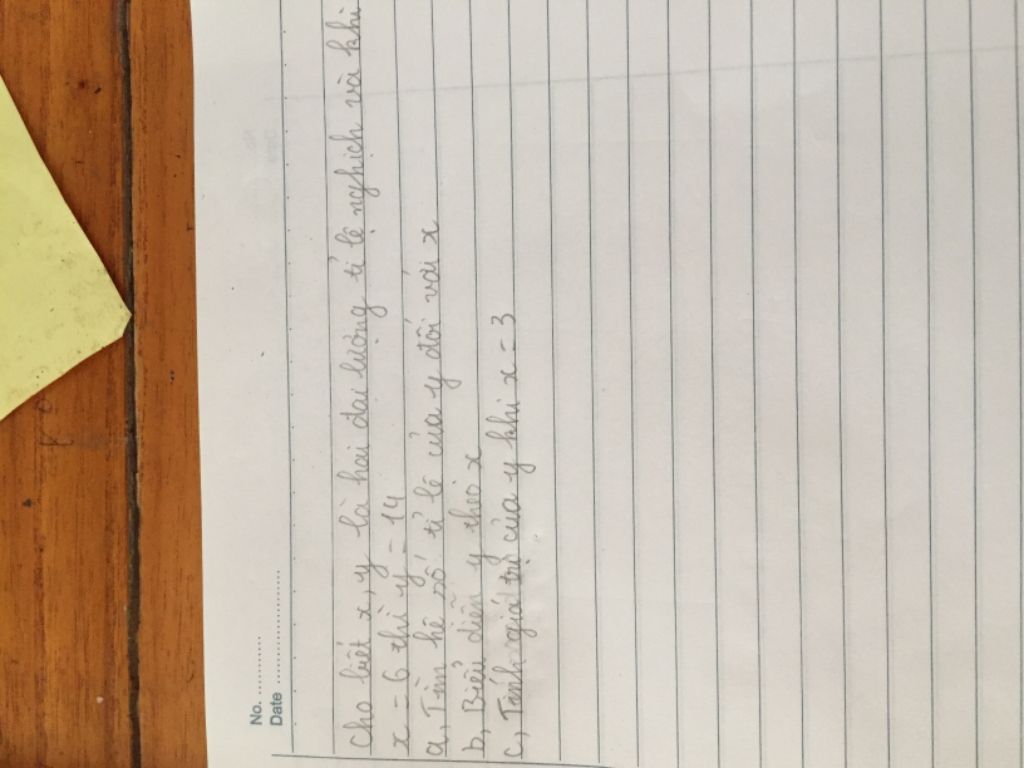 No. ............
Date ........................
Cho biết x, y là hai đai lượng tỉ lệ nghịch và khi
x = 6 thì y = 14
a, Tìm hê số tỉ lê của y đối với x
b, Biểu diễn y theo x
c, Tính giá trị của y khi x = 3